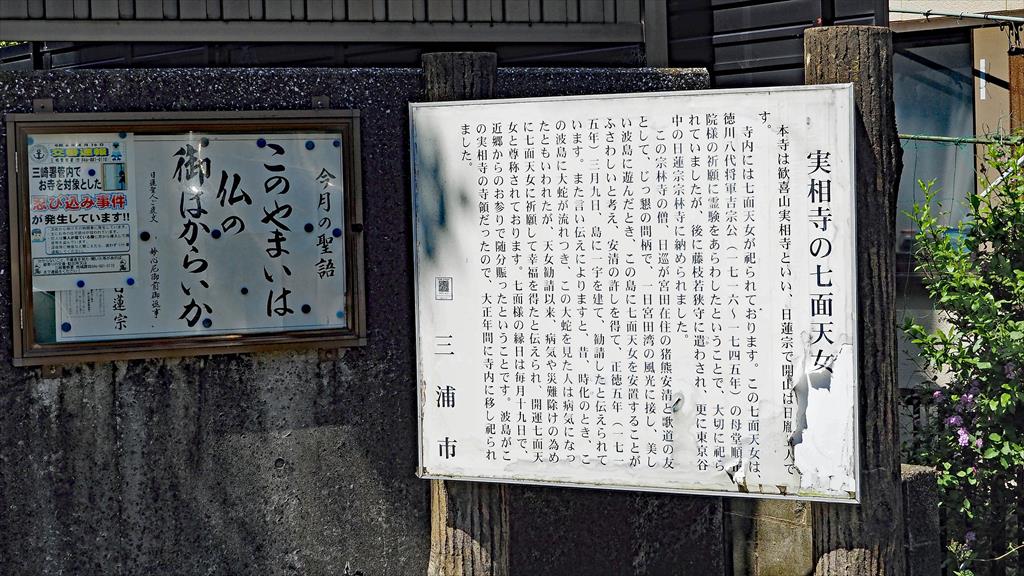 実相寺の七面天女
本寺は歓喜山実相寺といい、日蓮宗で開山は日胤 人で
す。
寺内には七面天女が祀られております。この七面天女は、
徳川八代将軍吉宗公（一七一六〜一七四五年）の母堂順
院様の祈願に霊験をあらわしたということで、大切に祀ら
れていましたが、後に藤枝若狭守に遣わされ、更に東京谷
中の日蓮宗宗林寺に納められました。
この宗林寺の僧、日巡が宮田在住の猪熊安清と歌道の友
として、じっ懇の間柄で、一日宮田湾の風光に接し、美し
い波島に遊んだとき、この島に七面天女を安置することが
ふさわしいと考え、安清の許しを得て、正徳五年（一七一
五年）三月九日、島に一宇を建て、勧請したと伝えられて
います。また言い伝えによりますと、昔、時化のとき、こ
の波島に大蛇が流れつき、この大蛇を見た人は病気になっ
たともいわれたが、天女勧請以来、病気や災難除けの為め
に七面天女に祈願して幸福を得たと伝えられ、開運七面天
女と尊称されております。七面様の縁日は毎月十九日で、
近郷からのお参りで随分賑ったということです。波島がこ
の実相寺の寺領だったので、大正年間に寺内に移し祀られ
ました。
三浦市
今月の聖語
このやまいは
仏の
御はからいか
日蓮聖人ご遺文 妙心尼御前御返事
日蓮宗
交番速報
三崎署管内で
お寺を対象とした
忍び込み事件
が発生しています!!